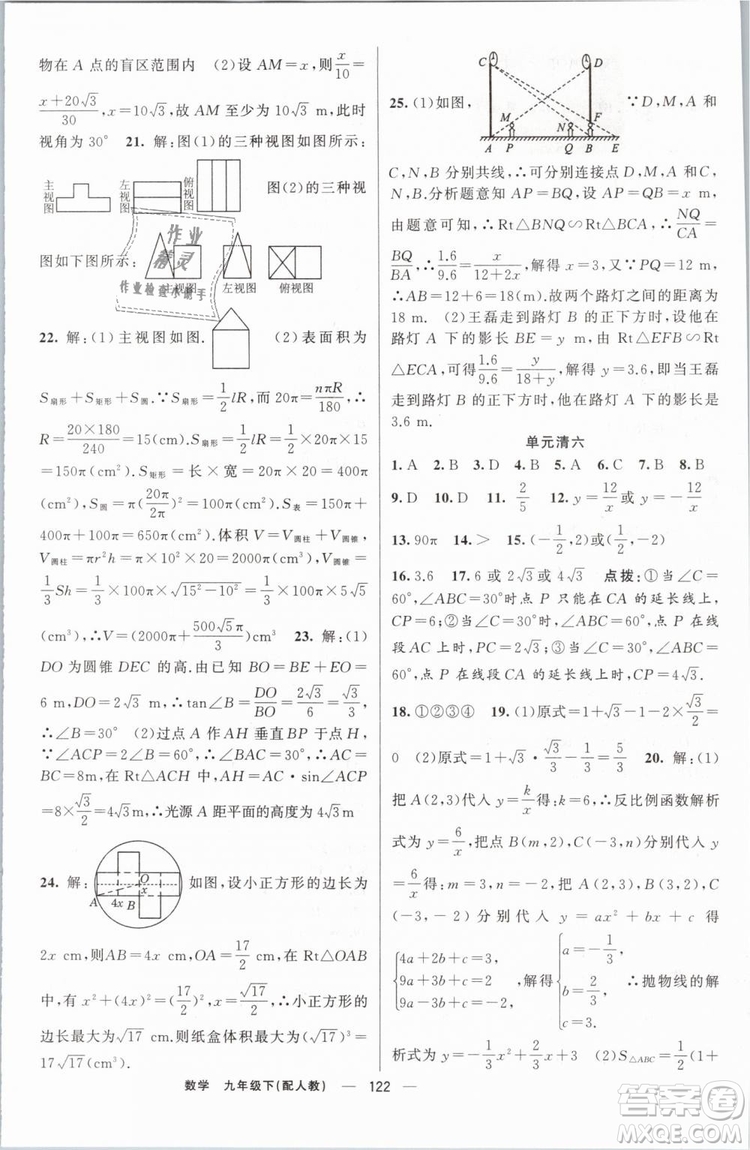 物在 A 点的盲区范围内 (2)设 AM=x,则 x/10 =
(x+20√3)/30, x=10√3,故 AM 至少 10√3 m,此时
视角为 30° 21. 解:图(1)的三种视图如图所示:
主视图 左视图 俯视图 图(2)的三种视
图如下图所示: 主视图 左视图 俯视图
22. 解:(1)主视图如图. (2)表面积为
S扇形+S矩形+S圆.∵S扇形=1/2 lR,20π=nπR/180,∴
R=20×180/240=15(cm).S扇形=1/2 lR=1/2×20π×15
=150π(cm²).S矩形=长×宽=20π×20=400π
(cm²),S圆=π(20π/2π)²=100π(cm²),S表=150π+
400π+100π=650π(cm²).体积 V=V圆柱+V圆锥.∵
V圆柱=πr²h=π×10²×20=2000π(cm³),V圆锥=
1/3 Sh=1/3×100π×√(15²−10²)=1/3×100π×5√5
(cm³),∴V=(2000π+500√5π/3)(cm³) 23. 解:(1)
DO 为圆锥 DEC 的高.由已知 BO=BE+EO=
6 m,DO=2√3 m,∴tan∠B=DO/BO=2√3/6=√3/3,
∴∠B=30° (2)过点 A 作 AH 垂直 BP 于点 H,
∵∠ACP=2∠B=60°,∴∠BAC=30°,∴AC=
BC=8 m.在 Rt△ACH 中,AH=AC·sin∠ACP
=8×√3/2=4√3 m,∴光源 A 距平面的高度为 4√3 m
24. 解: A 4x B O x 如图,设小正方形的边长为
2x cm,则AB=4x cm,OA=17/2 cm,在 Rt△OAB
中,有 x²+(4x)²=(17/2)²,x=√17/2,∴小正方形的
边长最大为√17 cm,则纸盒体积最大为(√17)³=
17√17(cm³)
25. (1)如图, C D M N F A P Q B E ∵D,M,A 和
C,N,B 分别共线,∴可分别连接点 D,M,A 和C,
N,B.分析题意知 AP=BQ,设 AP=BQ=x m,
由题意可知,∴Rt△BNQ∽Rt△BCA,∴NQ/CA=
BQ/BA,∴1.6/9.6=x/(12+2x),解得 x=3.又∵PQ=12 m,
∴AB=12+6=18(m).故两个路灯之间的距离为
18 m. (2)王磊走到路灯 B 的正下方时,设他在
路灯 A 下的影长 BE=y m,由 Rt△EFB∽Rt
△ECA,可得1.6/9.6=y/(18+y),解得 y=3.6,即当王磊
走到路灯 B 的正下方时,他在路灯 A 下的影长是
3.6 m.
单元清六
1. A 2. B 3. B 4. D 5. D 6. B 7. B 8. B
9. D 10. D 11. 2/5 12. y=12/x或 y=−12/x
13. 90π 14. > 15. (−1/2,2)或(1/2,−2)
16. 3.6 17. 6 或 2√3 或 4√3 点拨:①当∠C=
60°,∠ABC=30°时,点 P 只能在 CA 的延长线上,
CP=6;②当∠C=30°,∠ABC=60°时,点 P 在 CA
的延长线上时,CP=2√3;③当∠C=30°,∠ABC=
60°,点 P 在线段 CA 的延长线上时,CP=4√3.
18. ①②③④ 19. (1)原式=1+√3−1−2×√3/2=
0 (2)原式=1+√3·√3/3−1/3=5/3 20. 解:(1)
把 A(2,3)代入 y=k/x得:k=6,∴反比例函数解析
式为 y=6/x,把点 B(m,2),C(−3,n)分别代入 y=
6/x得:m=3,n=−2,把 A(2,3),B(3,2),C
(−3,−2)分别代入 y=ax²+bx+c 得
{4a+2b+c=3, 9a+3b+c=2, 9a−3b+c=−2, 解得{a=−1/3, b=2/3, c=3. ∴抛物线的解
析式为:y=−1/3x²+2/3x+3 (2)S△ABC=1/2(1+
数学 九年级下(配人教) — 122 —
作业精灵
作业检查小助手
答案圈
MXQE.COM